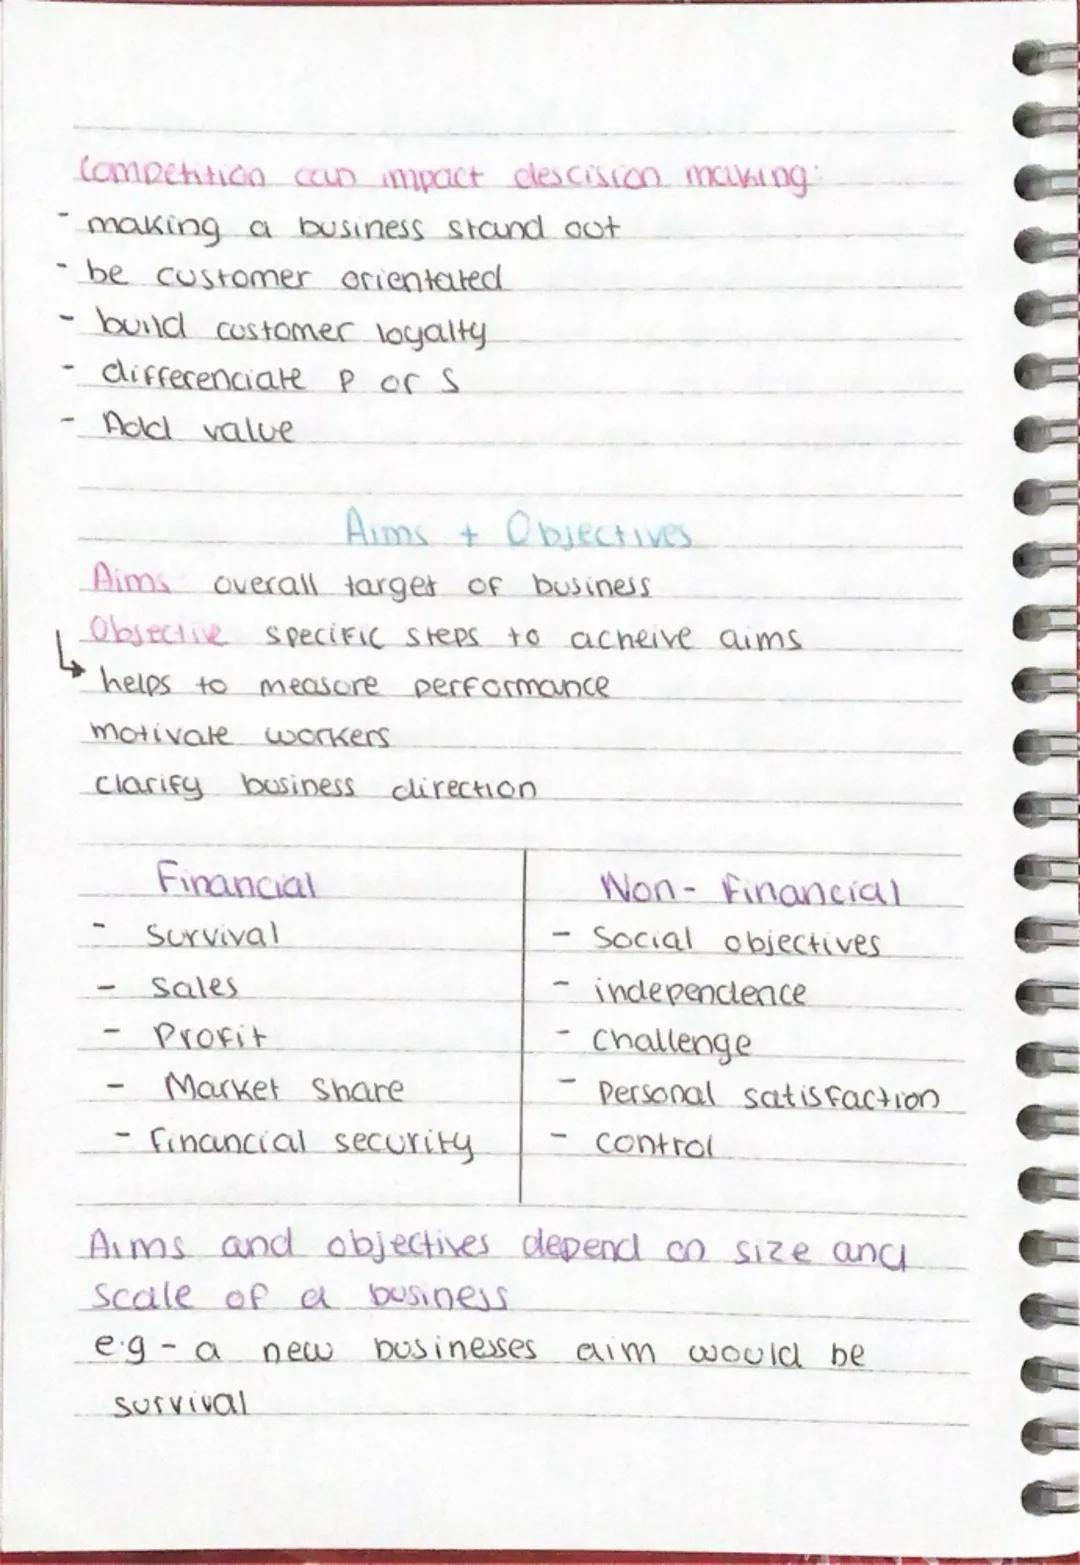 Competition can impact descision making:
- making a business stand out
- be customer orientated
- build customer loyalty
- differenciate P or S
- Add value
Aims + Objectives
Aims overall target of business
Objective specific steps to acheive aims
↳ helps to measure performance
motivate workers
clarify business direction
Financial
- Survival
- Sales
- Profit
- Market Share
- financial security
Non-financial
- Social objectives
- independence
- Challenge
- Personal satisfaction
- control
Aims and objectives depend on size and
scale of a business
e.g - a new businesses aim would be
survival